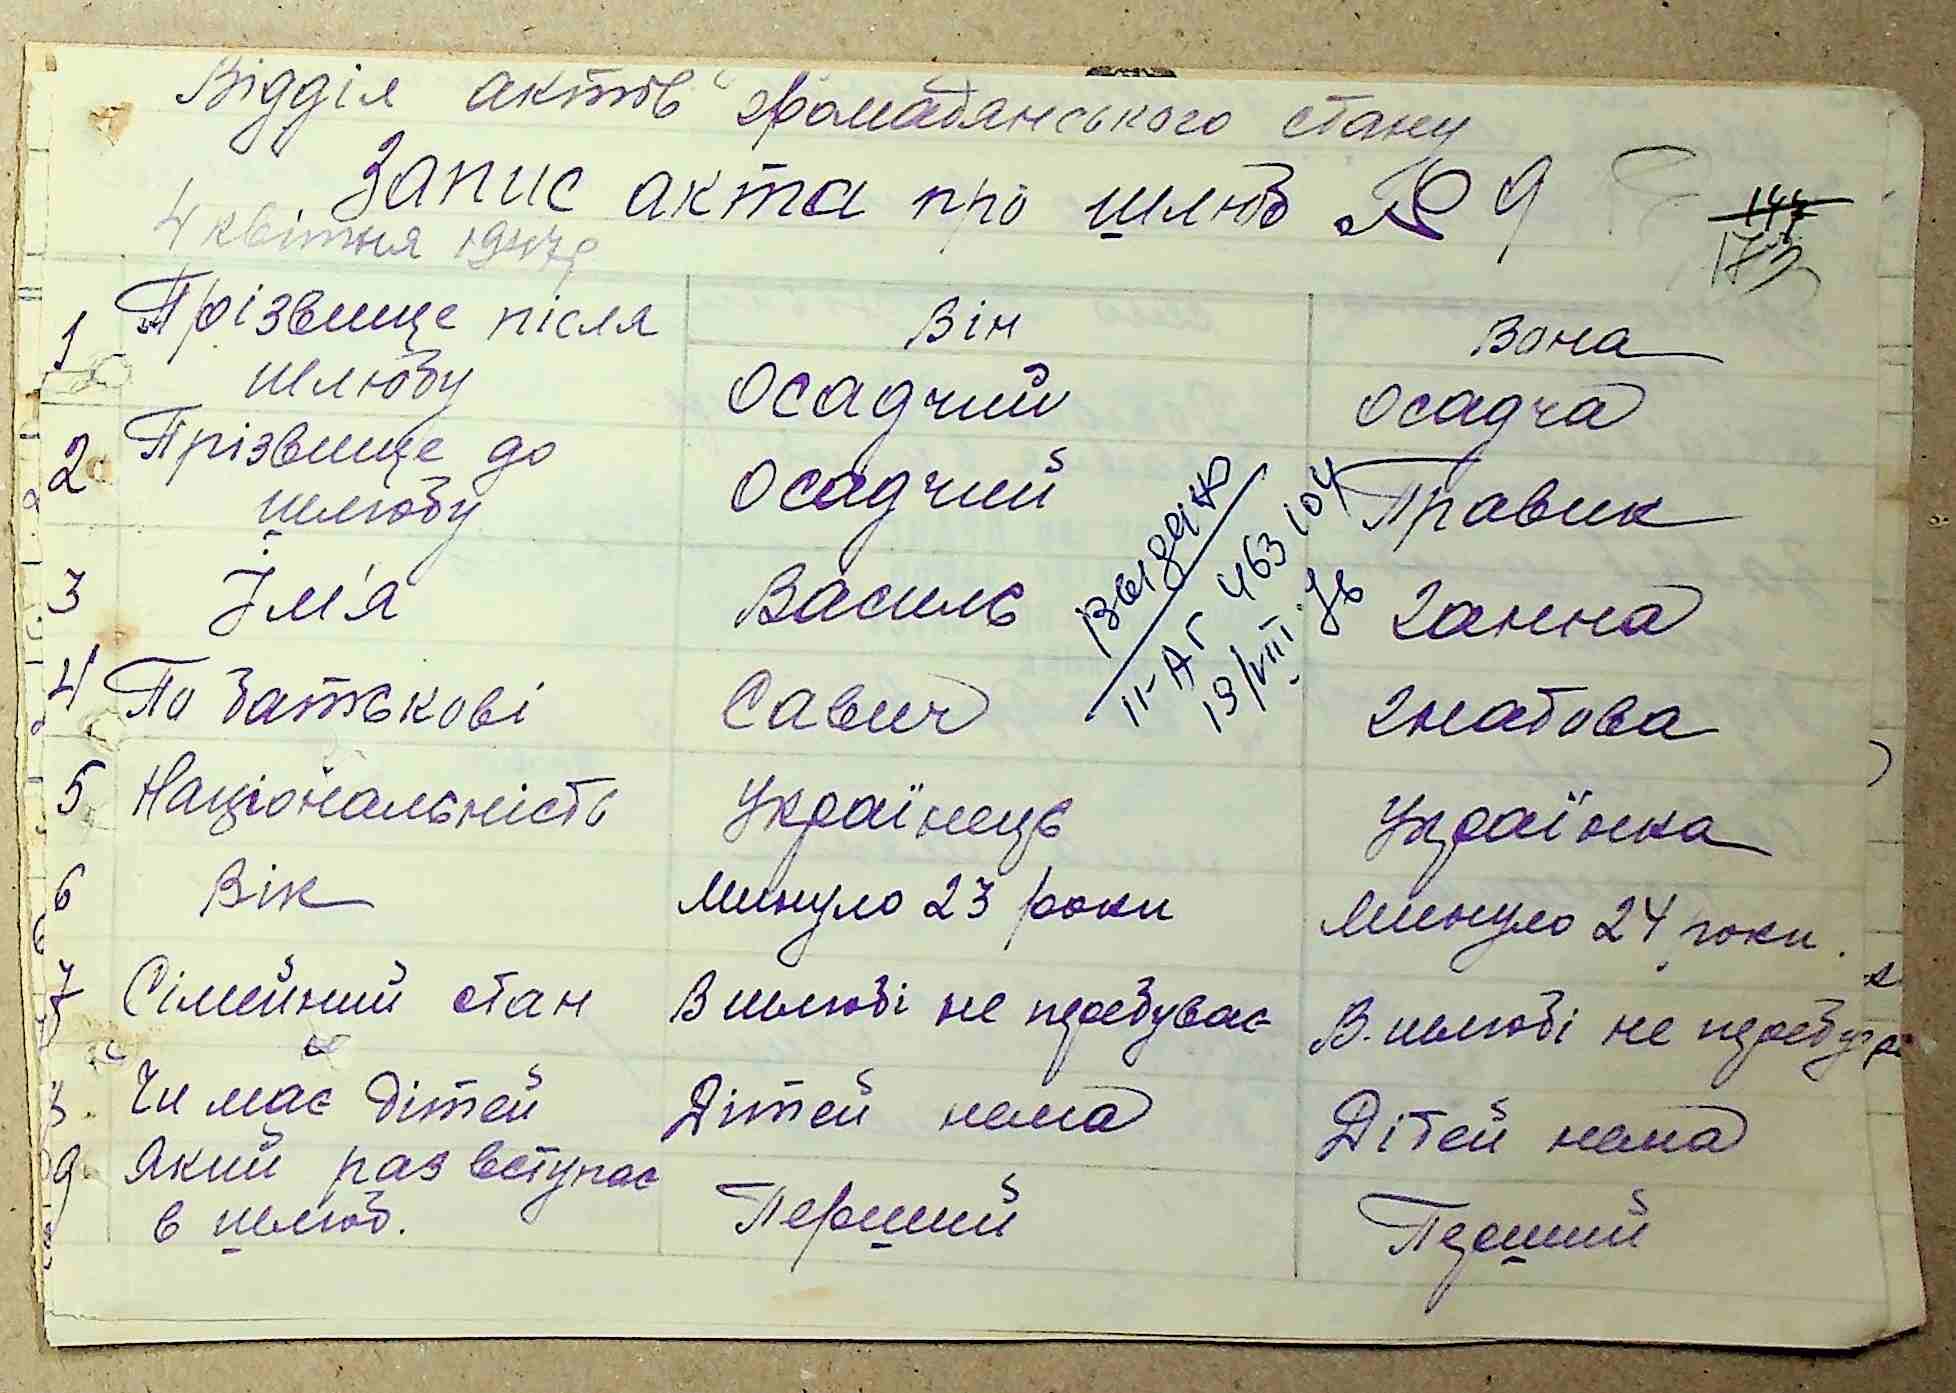 Відділ актів громадянського стану
Запис акта про шлюб № 9
4 квітня 1947р
147
173
Він
Вона
1 Прізвище після шлюбу
Осадчий
Осадча
2 Прізвище до шлюбу
Осадчий
Правик
3 Їм'я
Василь
Ганна
4 По батькові
Савич
Гнатова
5 Національність
Українець
Українка
6 Вік
Минуло 23 роки
Минуло 24 роки.
7 Сімейний стан
В шлюбі не перебуває
В шлюбі не перебуває
8. Чи має дітей
Дітей нема
Дітей нема
9. Який раз вступає в шлюб.
Перший
Перший
II-АГ 463104
19/VIII.